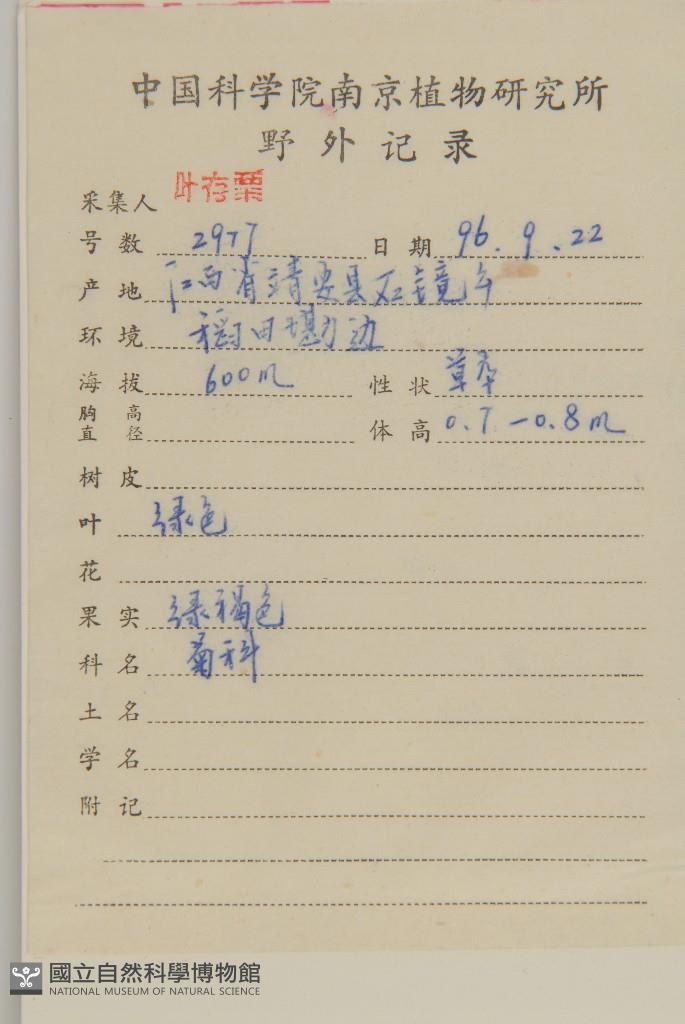 中国科学院南京植物研究所
野外记录
采集人 叶存粟
号数 2977 日期 96.9.22
产地 江西省靖安县石镜乡
环境 稻田墈边
海拔 600m 性状 草本
胸高直径 体高 0.7-0.8m
树皮
叶 绿色
花
果实 绿褐色
科名 菊科
土名
学名
附记
國立自然科學博物館
NATIONAL MUSEUM OF NATURAL SCIENCE